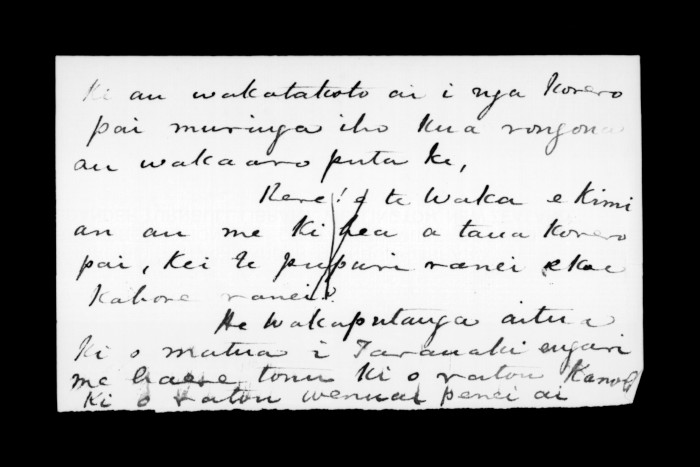 Ki au wakatakoto ai i nga korero
pai muringa iho Kua rongona
au wakaaro puta ke,
Kere! te Waka e Kimi
an au me Ki hea a taua Korero
pai, Kei te pupuri ranei e koe
Kahore ranei?
He Wakaputanga aitua
Ki o matua i Taranaki engari
me haere tonu Ki o ratou
Ki o ratou wenua penei ai